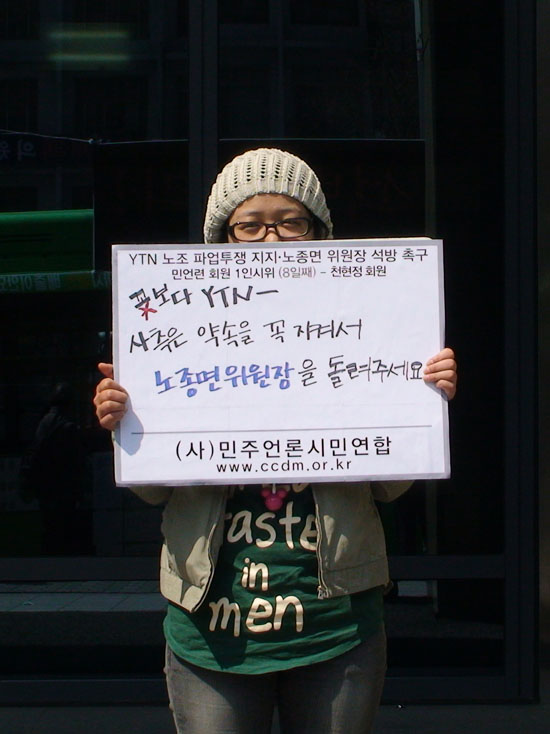 YTN 노조 파업투쟁 지지·노종면 위원장 석방 촉구
민언련 회원 1인시위 (8일째) - 천현정 회원
꽃보다 YTN -
사측은 약속을 꼭 지켜서
노종면위원장을 돌려주세요
(사)민주언론시민연합
www.ccdm.or.kr
taste
in
men